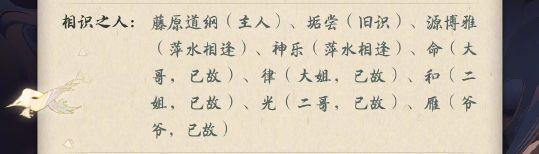 相识之人：藤原道纲（主人）、垢尝（旧识）、源博雅
（萍水相逢）、神乐（萍水相逢）、命（大
哥，已故）、律（大姐，已故）、和（二
姐，已故）、光（二哥，已故）、雁（爷
爷，已故）